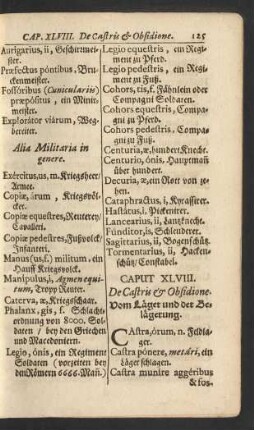 CAP. XLVIII. De Castris & Obsidione. 125
Aurigarius, ii, Geschirrmei-
ster.
Præfectus póntibus, Bru-
ckenmeister.
Fossóribus (Cuniculariis)
præpósitus, ein Mini-
meister.
Explorátor viárum, Weg-
bereiter.
Alia Militaria in
genere.
Exércitus, us, m. Kriegsheer/
Armee.
Copiæ, árum, Kriegsvöl-
cker.
Copiæ equestres, Reuterey/
Cavalleri.
Copiæ pedestres, Fußvolck/
Infanteri.
Manus, (us, f.) militum, ein
Hauff Kriegsvolck.
Manípulus, i, Agmen equi-
tum, Tropp Reuter.
Caterva, æ, Kriegsschaar.
Phalanx, gis, f. Schlacht-
ordnung von 8000. Sol-
daten / bey den Griechen
und Macedoniern.
Legio, ónis, ein Regiment
Soldaten (vorzeiten bey
den Römern 6666. Mañ.)
Legio equestris, ein Regi-
ment zu Pferd.
Legio pedestris, ein Regi-
ment zu Fuß.
Cohors, tis, f. Fähnlein oder
Compagni Soldaten.
Cohors equestris, Compa-
gni zu Pferd.
Cohors pedestris, Compa-
gni zu Fuß.
Centuria, æ, hundert Knecht.
Centurio, ónis, Hauptmañ
über hundert.
Decuria, æ, ein Rott von ze-
hen.
Cataphractus, i, Kyrassirer.
Hastátus, i, Pickenirer.
Lancearius, ii, Lantzknecht.
Fúnditor, is, Schlenderer.
Sagittarius, ii, Bogenschütz.
Tormentarius, ii, Hacken-
schütz/ Constabel.
CAPUT XLVIII.
De Castris & Obsidione.
Vom Läger und der Be-
lägerung.
CAstra, órum, n. Feldla-
ger.
Castra pónere, metári, ein
Läger schlagen.
Castra munire aggéribus
& fos-